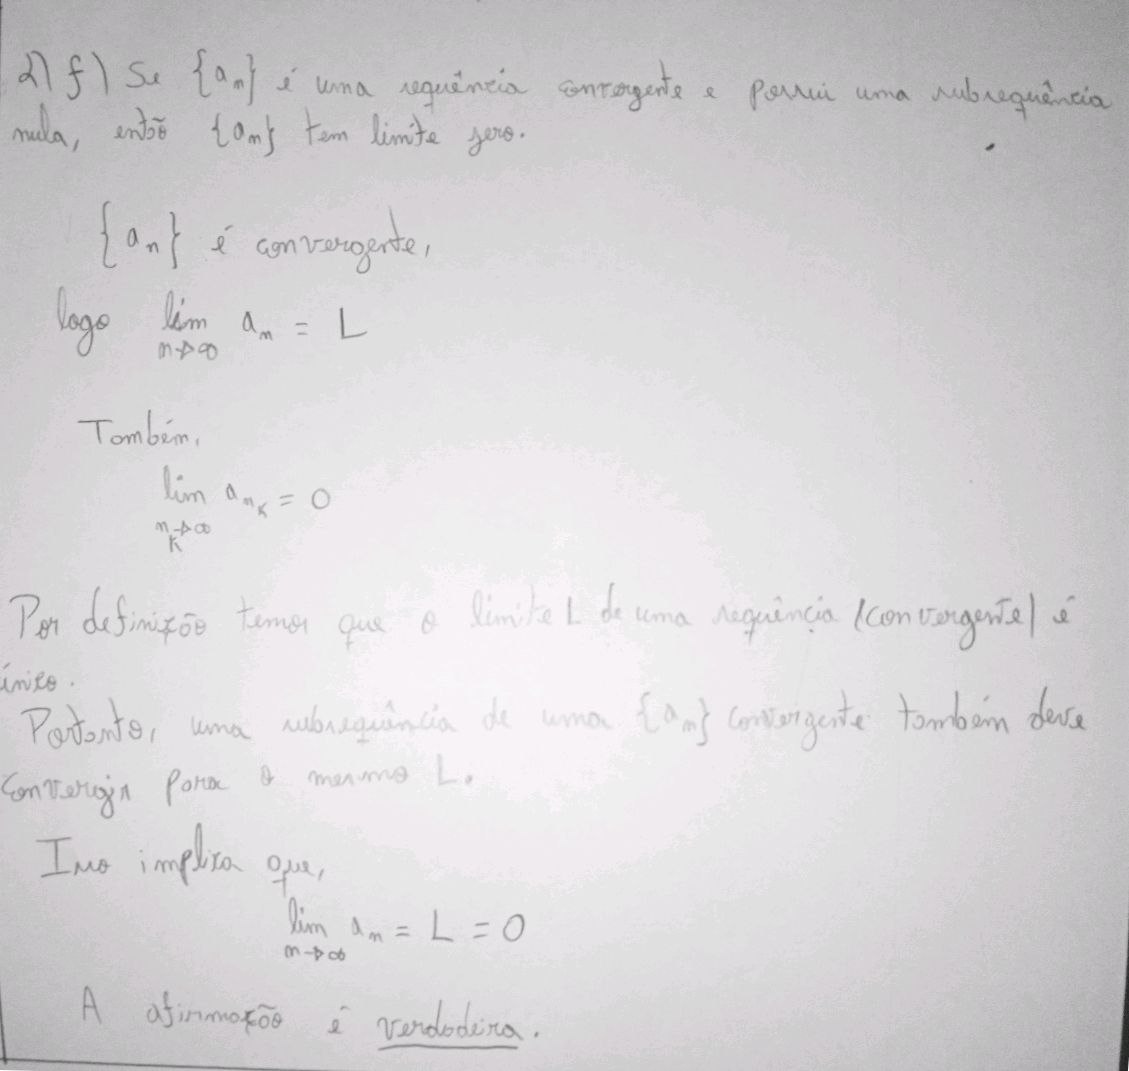 2) f) Se {an} é uma sequência convergente e possui uma subsequência
nula, então {an} tem limite zero.
{an} é convergente,
logo lim an = L
n→∞
Também,
lim ank = 0
nk→∞
Por definição temos que o limite L de uma sequência (convergente) é
único.
Portanto, uma subsequência de uma {an} convergente também deve
convergir para o mesmo L.
Isso implica que,
lim an = L = 0
n→∞
A afirmação é verdadeira.